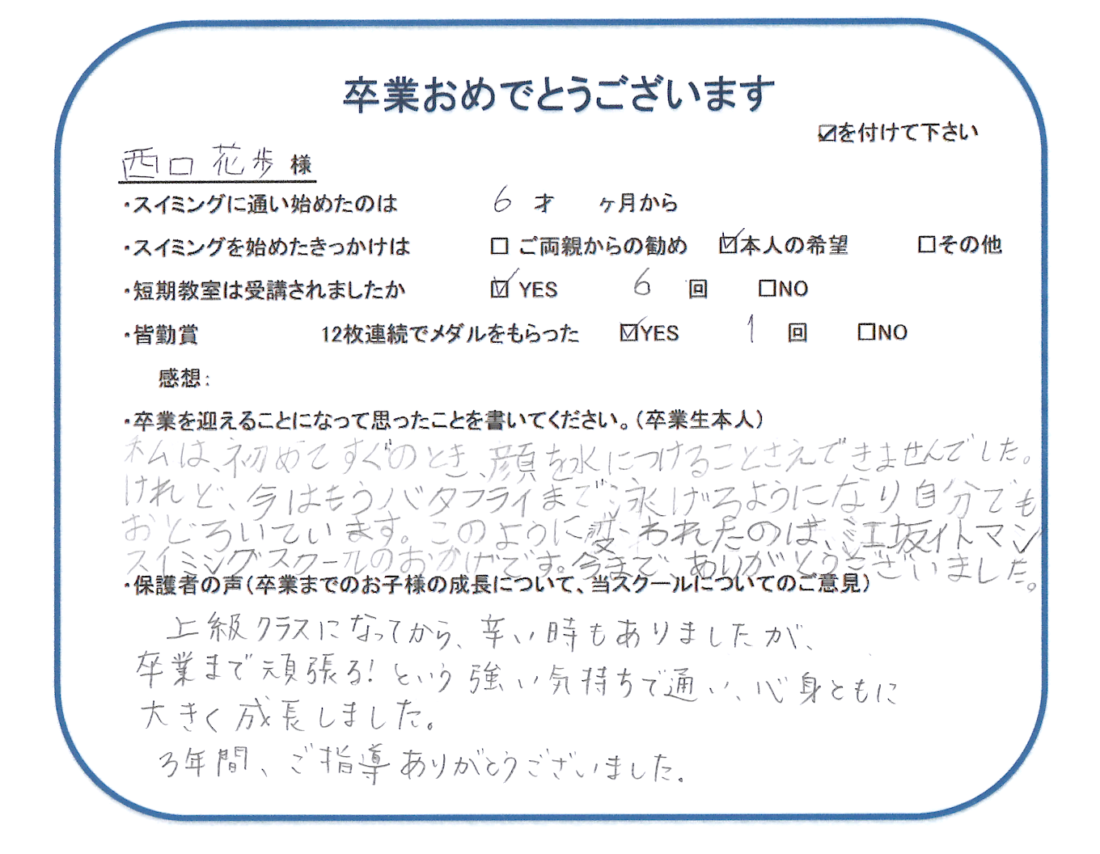 卒業おめでとうございます
☑を付けて下さい
西口 花歩 様
・スイミングに通い始めたのは 6 才 ヶ月から
・スイミングを始めたきっかけは □ ご両親からの勧め ☑本人の希望 □その他
・短期教室は受講されましたか ☑ YES 6 回 □NO
・皆勤賞 12枚連続でメダルをもらった ☑YES 1 回 □NO
感想:
・卒業を迎えることになって思ったことを書いてください。(卒業生本人)
私は、初めてすぐのとき、顔を水につけることさえできませんでした。
けれど、今はもうバタフライまで泳げるようになり自分でも
おどろいています。このように変われたのは、江坂イトマン
スイミングスクールのおかげです。今まで、ありがとうございました。
・保護者の声(卒業までのお子様の成長について、当スクールについてのご意見)
上級クラスになってから、辛い時もありましたが、
卒業まで頑張る!という強い気持ちで通い、心身ともに
大きく成長しました。
3年間、ご指導ありがとうございました。